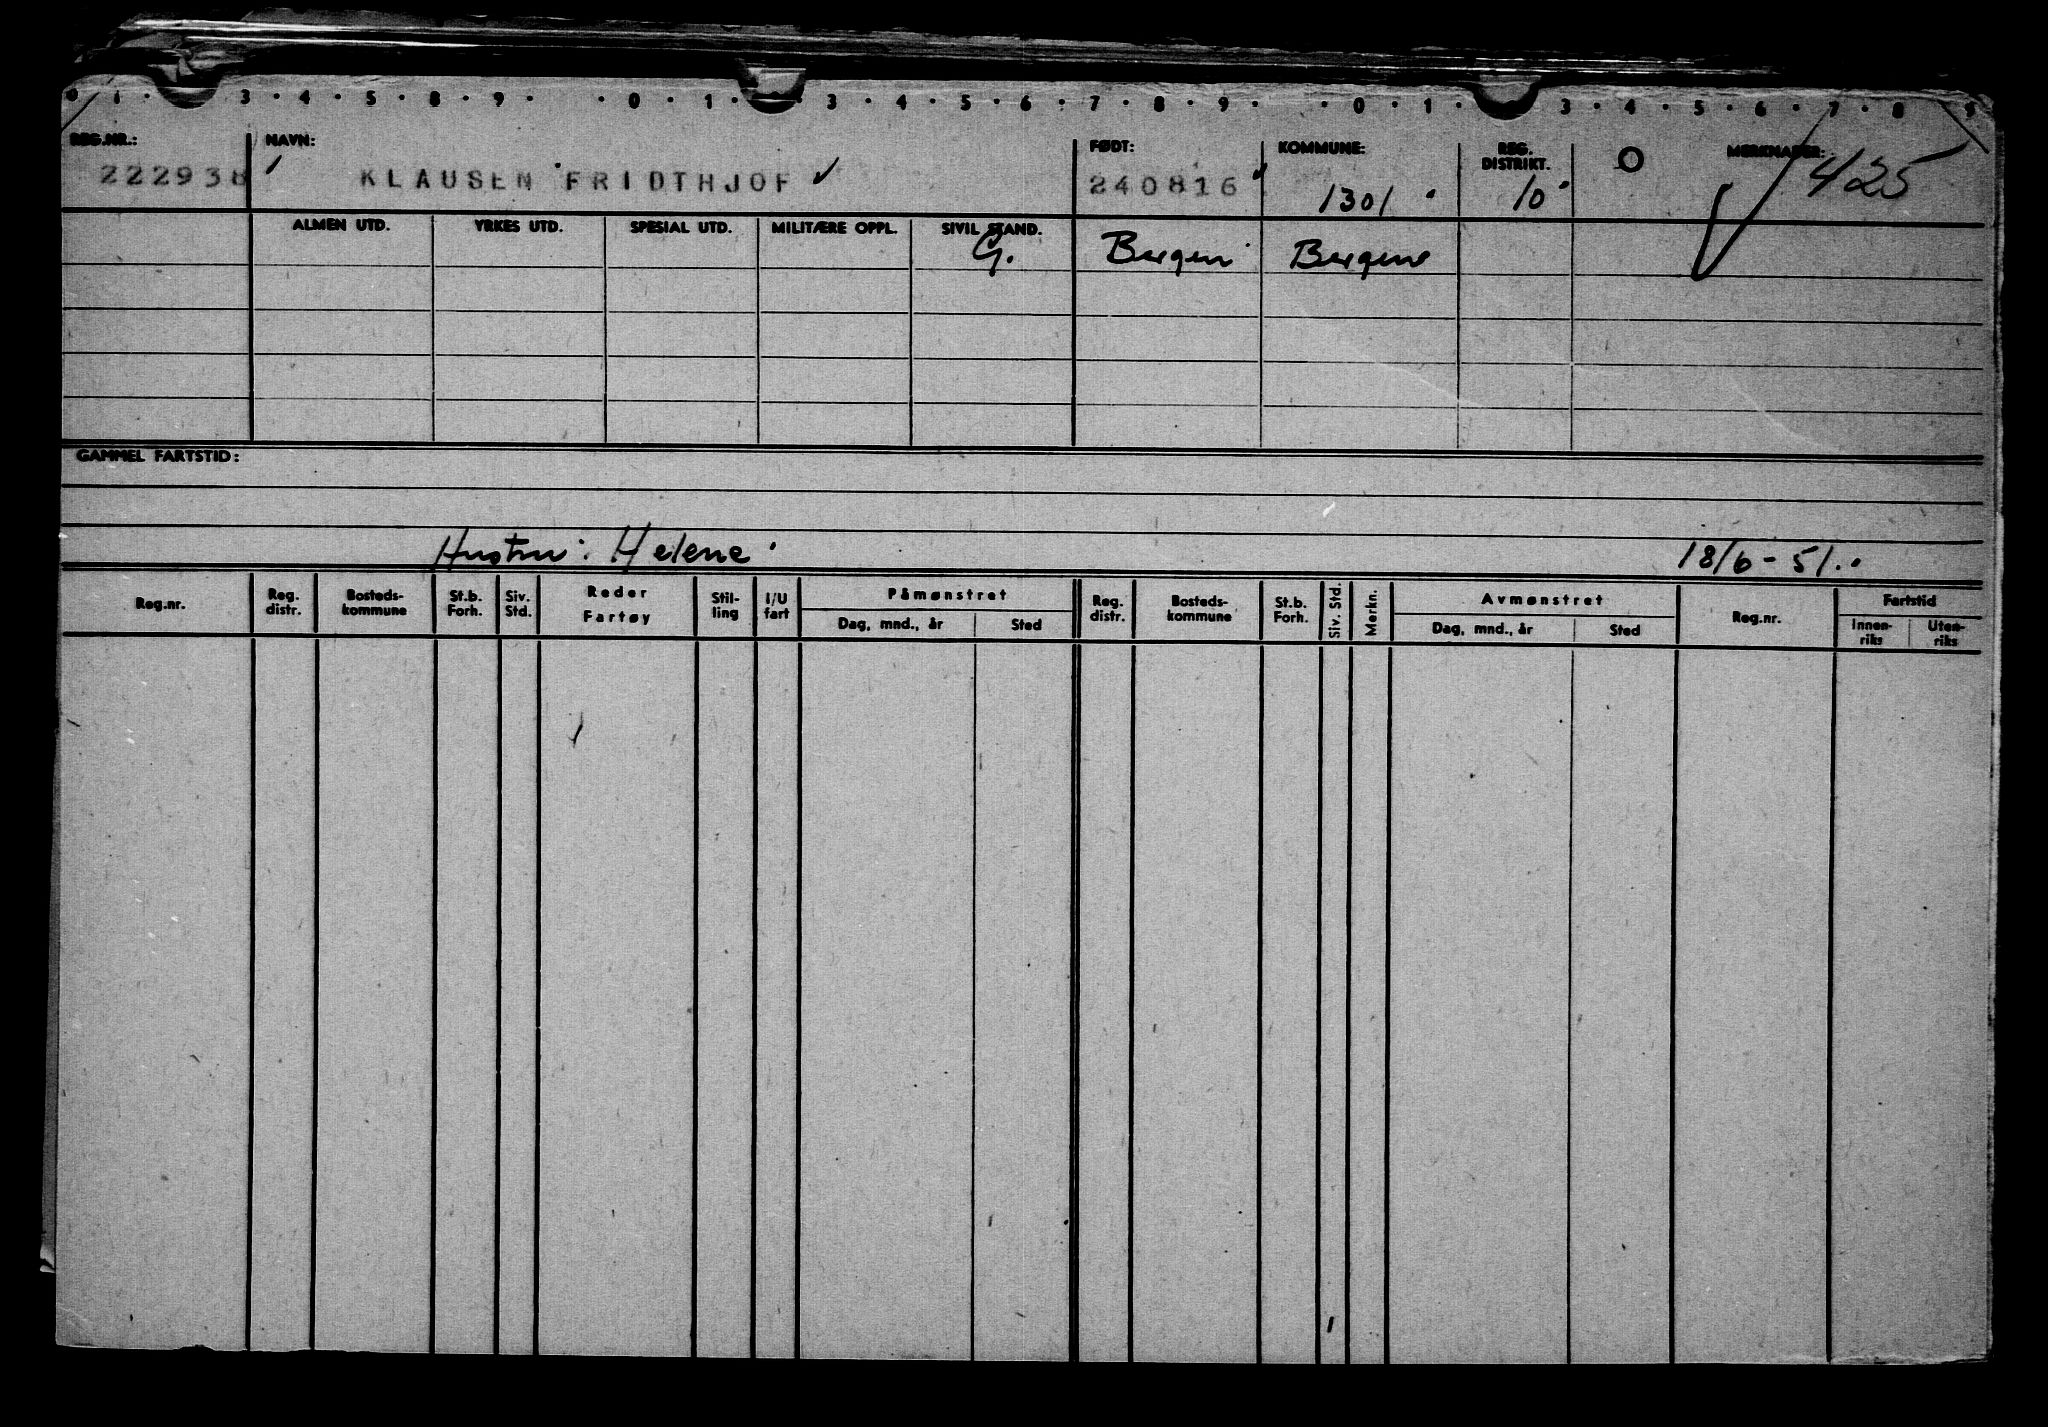 0 · 1 · 3 · 4 · 5 · 8 · 9 · · 0 · 1 · 3 · 4 · 5 · 6 · 7 · 8 · 9 · · 0 · 1 · 3 · 4 · 5 · 6 · 7 · 8 · 9
REG.NR.: NAVN: FØDT: KOMMUNE: REG. DISTRIKT. O MERKNADER:
222938 KLAUSEN FRIDTHJOF 240816 1301 10 425
ALMEN UTD. YRKES UTD. SPESIAL UTD. MILITÆRE OPPL. SIVIL STAND.
G. Bergen Bergen
GAMMEL FARTSTID:
Hustru: Helene 18/6-51.
Reg.nr. Reg. distr. Bosteds-kommune St.b. Forh. Siv. Std. Reder Fartøy Stil-ling I/U fart Påmønstret Reg. distr. Bosteds-kommune St.b. Forh. Siv. Std. Merkn. Avmønstret Reg.nr. Fartstid
Dag, mnd., år Sted Dag, mnd., år Sted Innen-riks Uten-riks